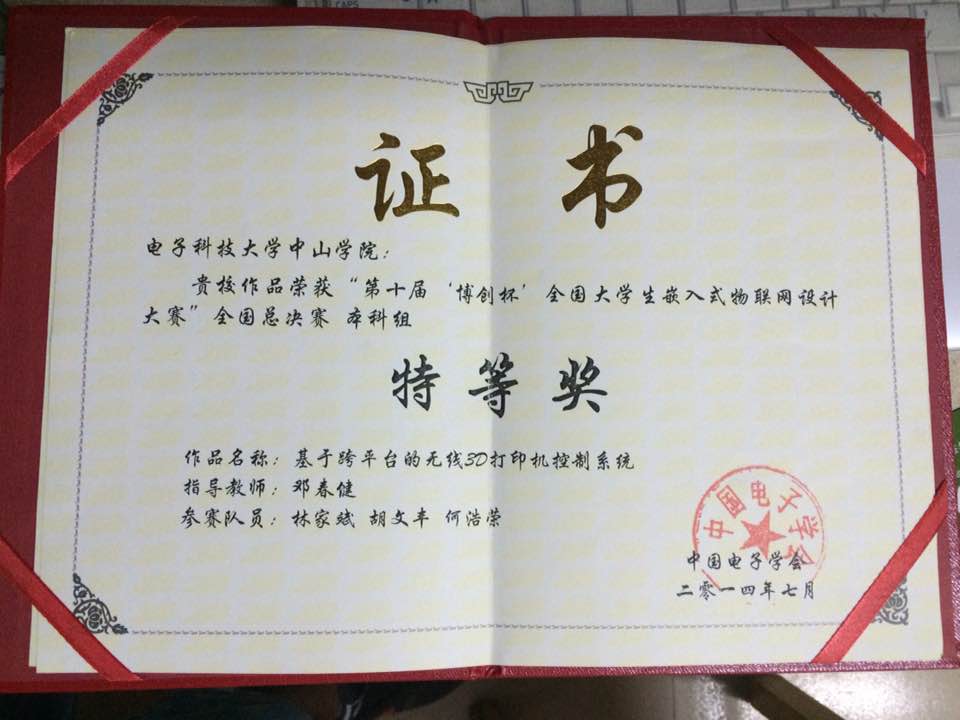 CAPS
证书
电子科技大学中山学院：
贵校作品荣获“第十届‘博创杯’全国大学生嵌入式物联网设计
大赛”全国总决赛 本科组
特等奖
作品名称：基于跨平台的无线3D打印机控制系统
指导教师：邓春健
参赛队员：林家斌 胡文丰 何浩荣
中国电子学会
中国电子学会
二零一四年七月